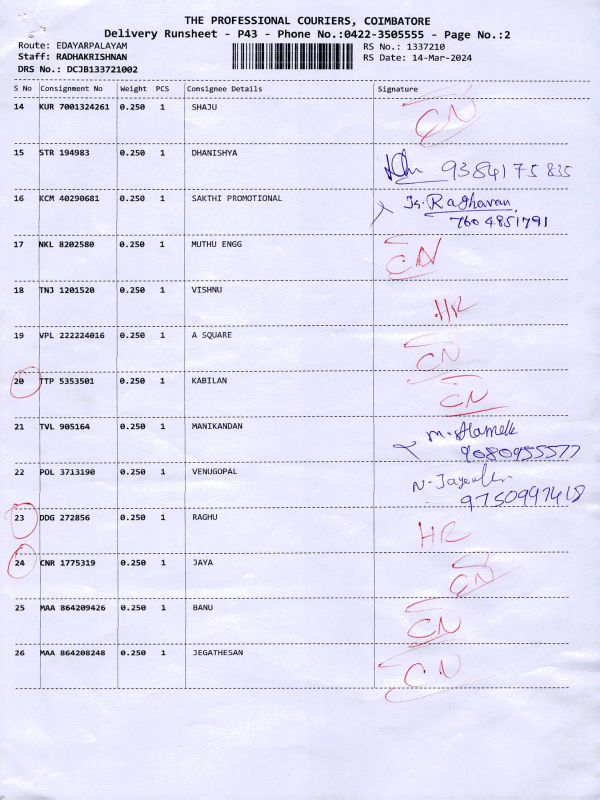 THE PROFESSIONAL COURIERS, COIMBATORE
Delivery Runsheet - P43 - Phone No.:0422-3505555 - Page No.:2
Route: EDAYARPALAYAM RS No.: 1337210
Staff: RADHAKRISHNAN RS Date: 14-Mar-2024
DRS No.: DCJB133721002
S No Consignment No Weight PCS Consignee Details Signature
14 KUR 7001324261 0.250 1 SHAJU CN
15 STR 194983 0.250 1 DHANISHYA 9384175835
16 KCM 40290681 0.250 1 SAKTHI PROMOTIONAL Raghavan
7604851791
17 NKL 8202580 0.250 1 MUTHU ENGG CN
18 TNJ 1201520 0.250 1 VISHNU HR
19 VPL 222224016 0.250 1 A SQUARE CN
20 TTP 5353501 0.250 1 KABILAN CN
21 TVL 905164 0.250 1 MANIKANDAN
9080955577
22 POL 3713190 0.250 1 VENUGOPAL
9750997418
23 DDG 272856 0.250 1 RAGHU HR
24 CNR 1775319 0.250 1 JAYA CN
25 MAA 864209426 0.250 1 BANU CN
26 MAA 864208248 0.250 1 JEGATHESAN CN